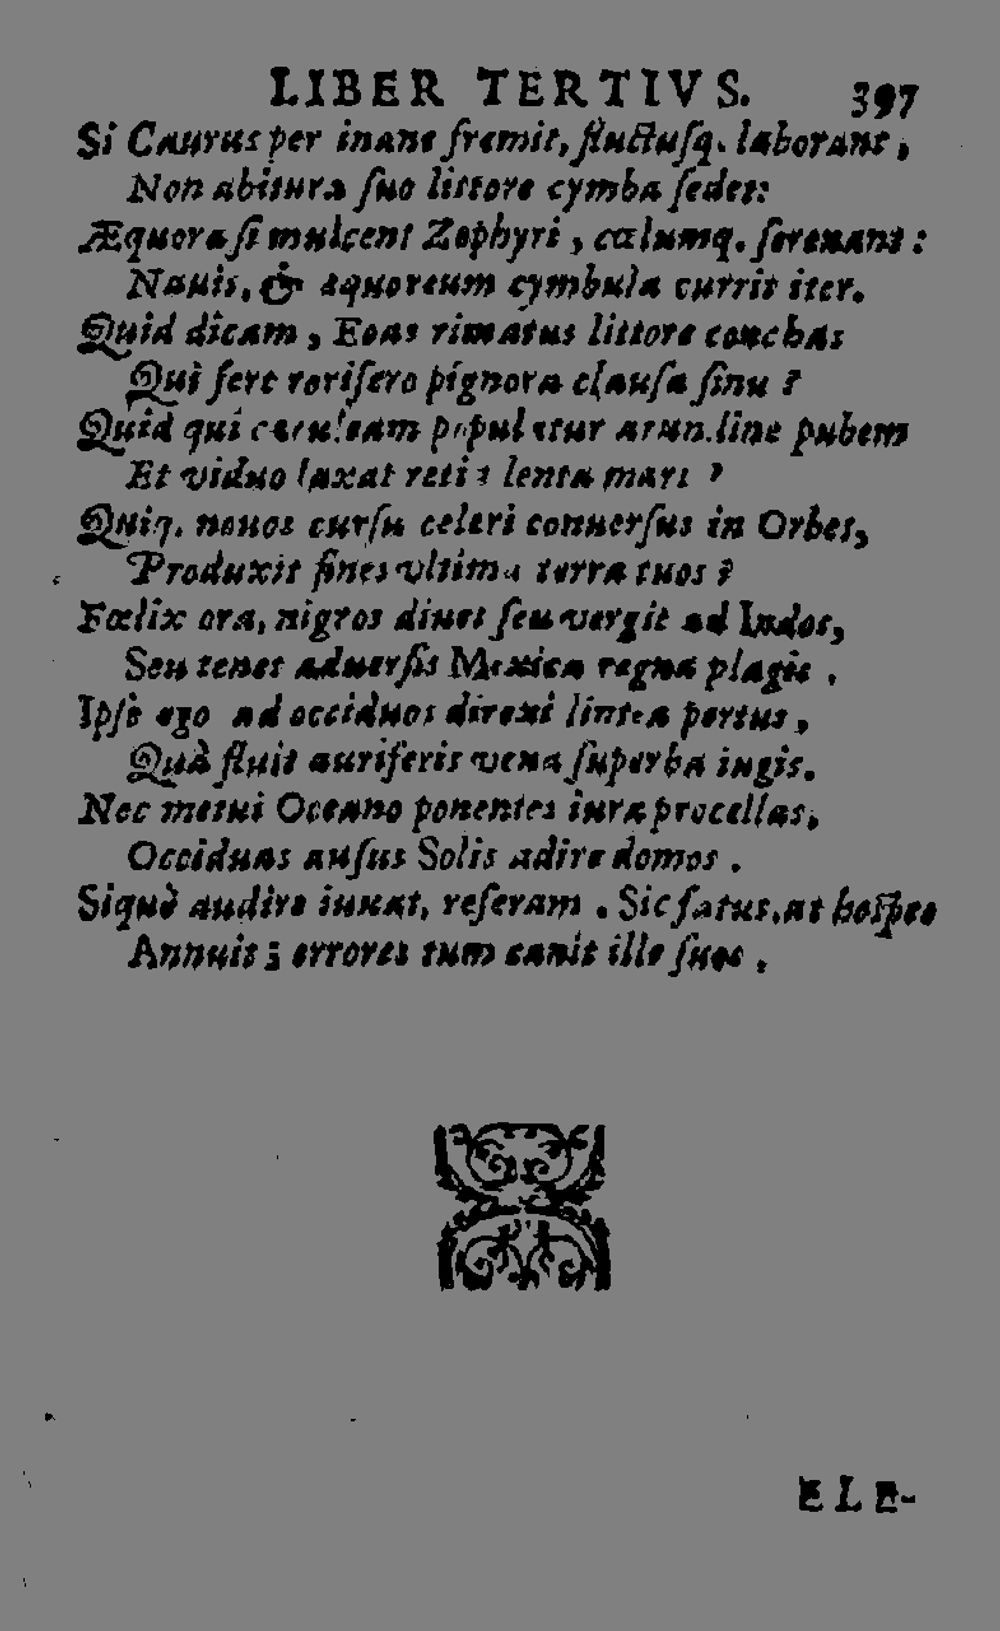 LIBER TERTIVS. 397
Si Caurus per inane fremit, fluctuſq. laborant,
Non abitura ſuo littore cymba ſedet:
Æquora ſi mulcent Zephyri, cœlumq. ſerenant:
Nauis, & æquoreum cymbula currit iter.
Quid dicam, Eoas rimatus littore conchas
Qui fert roriſero pignora clauſa ſinu?
Quid qui cæruleam populatur arundine pubem
Et viduo laxat retia lenta mari?
Quiq. nouos curſu celeri conuerſus in Orbes,
Produxit fines vltima terra tuos?
Fœlix ora, nigros diues ſeu vergit ad Indos,
Seu tenet aduerſis Mexica regna plagis.
Ipſe ego ad occiduos direxi lintea portus,
Quà fluit auriferis vena ſuperba iugis.
Nec metui Oceano ponentes iura procellas,
Occiduas auſus Solis adire domos.
Siquè audire iuuat, referam. Sic fatus, at hoſpes
Annuit; errores tum canit ille ſuos.
ELE-